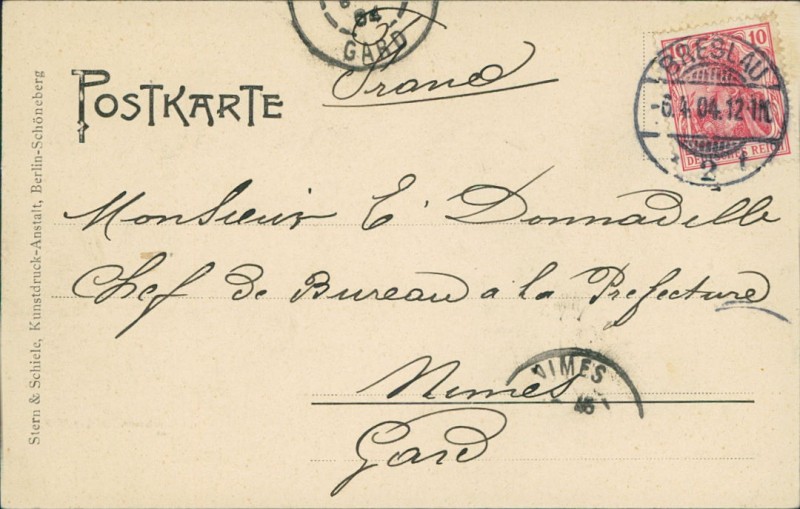 04
GARD
10
BRESLAU
-6.4.04.12-1N.
DEUTSCHES REICH
2
Franc
POSTKARTE
Monsieur E. Donnadille
Chef de Bureau a la Prefecture
Nimes
NIMES
Gard
Stern & Schiele, Kunstdruck-Anstalt, Berlin-Schöneberg